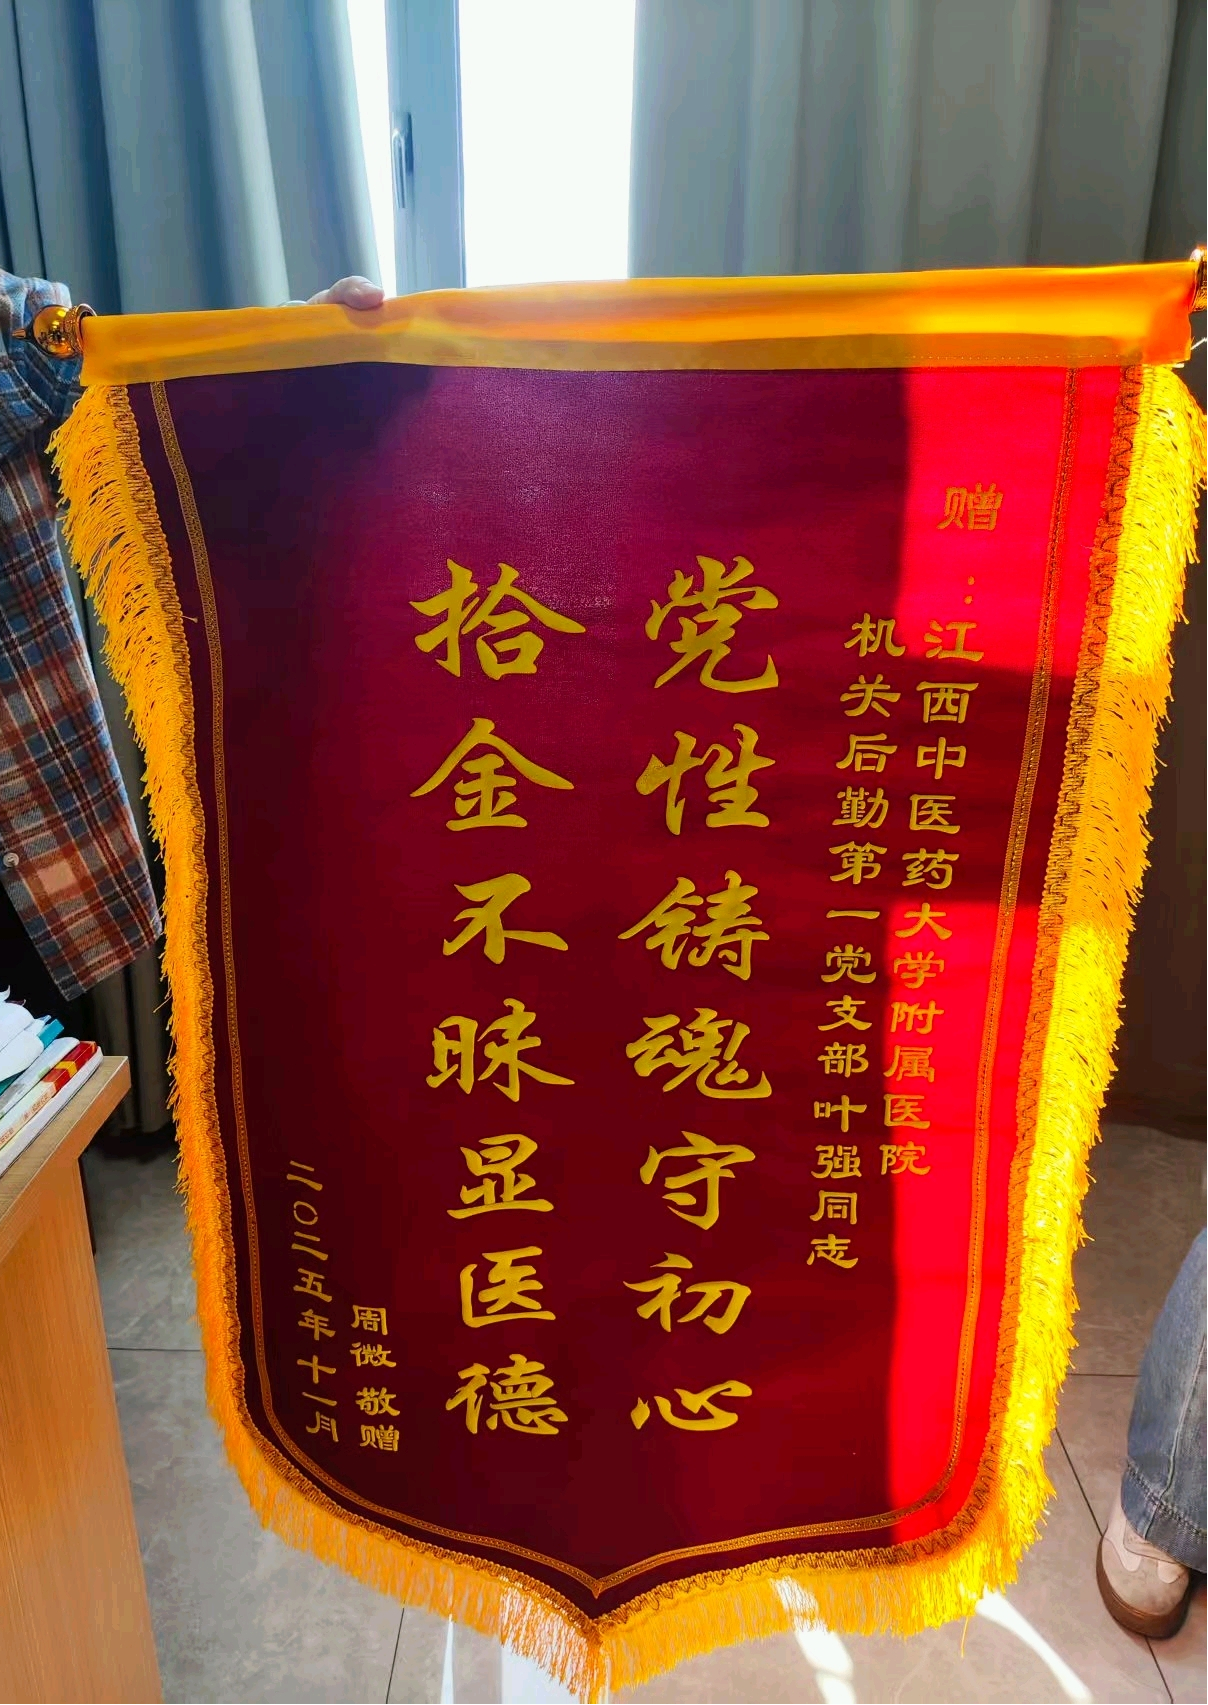 赠：江西中医药大学附属医院
机关后勤第一党支部叶强同志
党性铸魂守初心
拾金不昧显医德
周微 敬赠
二〇二五年十一月